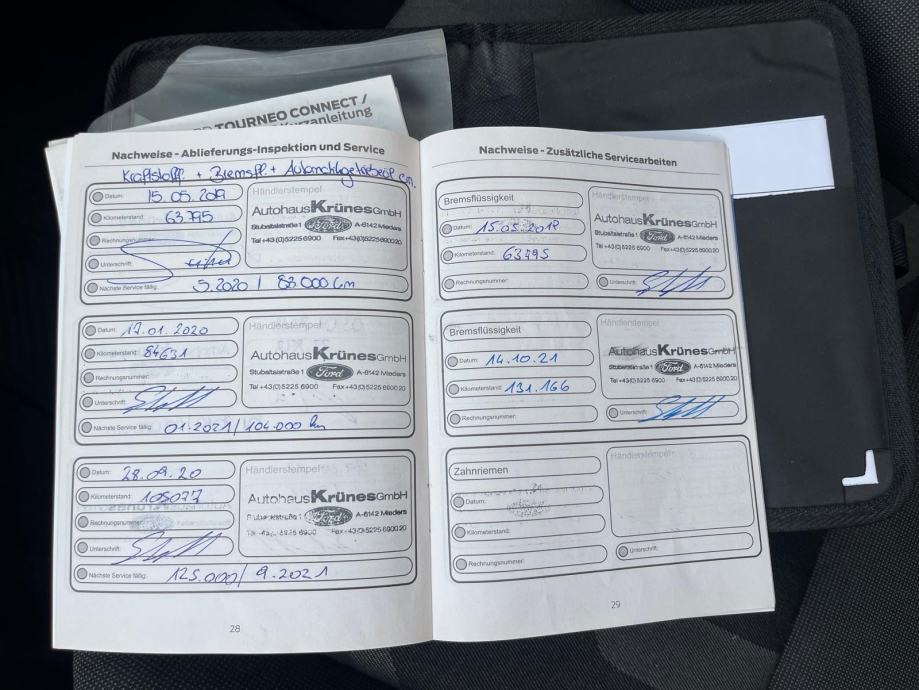 TOURNEO CONNECT /
Kurzanleitung
Nachweise - Ablieferungs-Inspektion und Service
Kraftstofff. + Bremsfl. + Automatikgetriebeöl ern.
Datum: 15.05.2019
Kilometerstand: 63.795
Rechnungsnummer:
Unterschrift:
Nächste Service fällig: 5.2020 / 83.000 km
Händlerstempel
Autohaus Krünes GmbH
Stubaitalstraße 1 Ford A-6142 Mieders
Tel +43(0)5225 6900 Fax +43(0)5225 690020
Datum: 17.01.2020
Kilometerstand: 84631
Rechnungsnummer:
Unterschrift:
Nächste Service fällig: 01.2021 / 104.000 km
Händlerstempel
Autohaus Krünes GmbH
Stubaitalstraße 1 Ford A-6142 Mieders
Tel +43(0)5225 6900 Fax +43(0)5225 690020
Datum: 28.09.20
Kilometerstand: 105077
Rechnungsnummer:
Unterschrift:
Nächste Service fällig: 125.000 / 9.2021
Händlerstempel
Autohaus Krünes GmbH
Stubaitalstraße 1 Ford A-6142 Mieders
Tel +43(0)5225 6900 Fax +43(0)5225 690020
28
Nachweise - Zusätzliche Servicearbeiten
Bremsflüssigkeit
Datum: 15.05.2018
Kilometerstand: 63795
Rechnungsnummer:
Händlerstempel
Autohaus Krünes GmbH
Stubaitalstraße 1 Ford A-6142 Mieders
Tel +43(0)5225 6900 Fax +43(0)5225 690020
Unterschrift:
Bremsflüssigkeit
Datum: 14.10.21
Kilometerstand: 131.166
Rechnungsnummer:
Händlerstempel
Autohaus Krünes GmbH
Stubaitalstraße 1 Ford A-6142 Mieders
Tel +43(0)5225 6900 Fax +43(0)5225 690020
Unterschrift:
Zahnriemen
Datum:
Kilometerstand:
Rechnungsnummer:
Händlerstempel
Unterschrift:
29